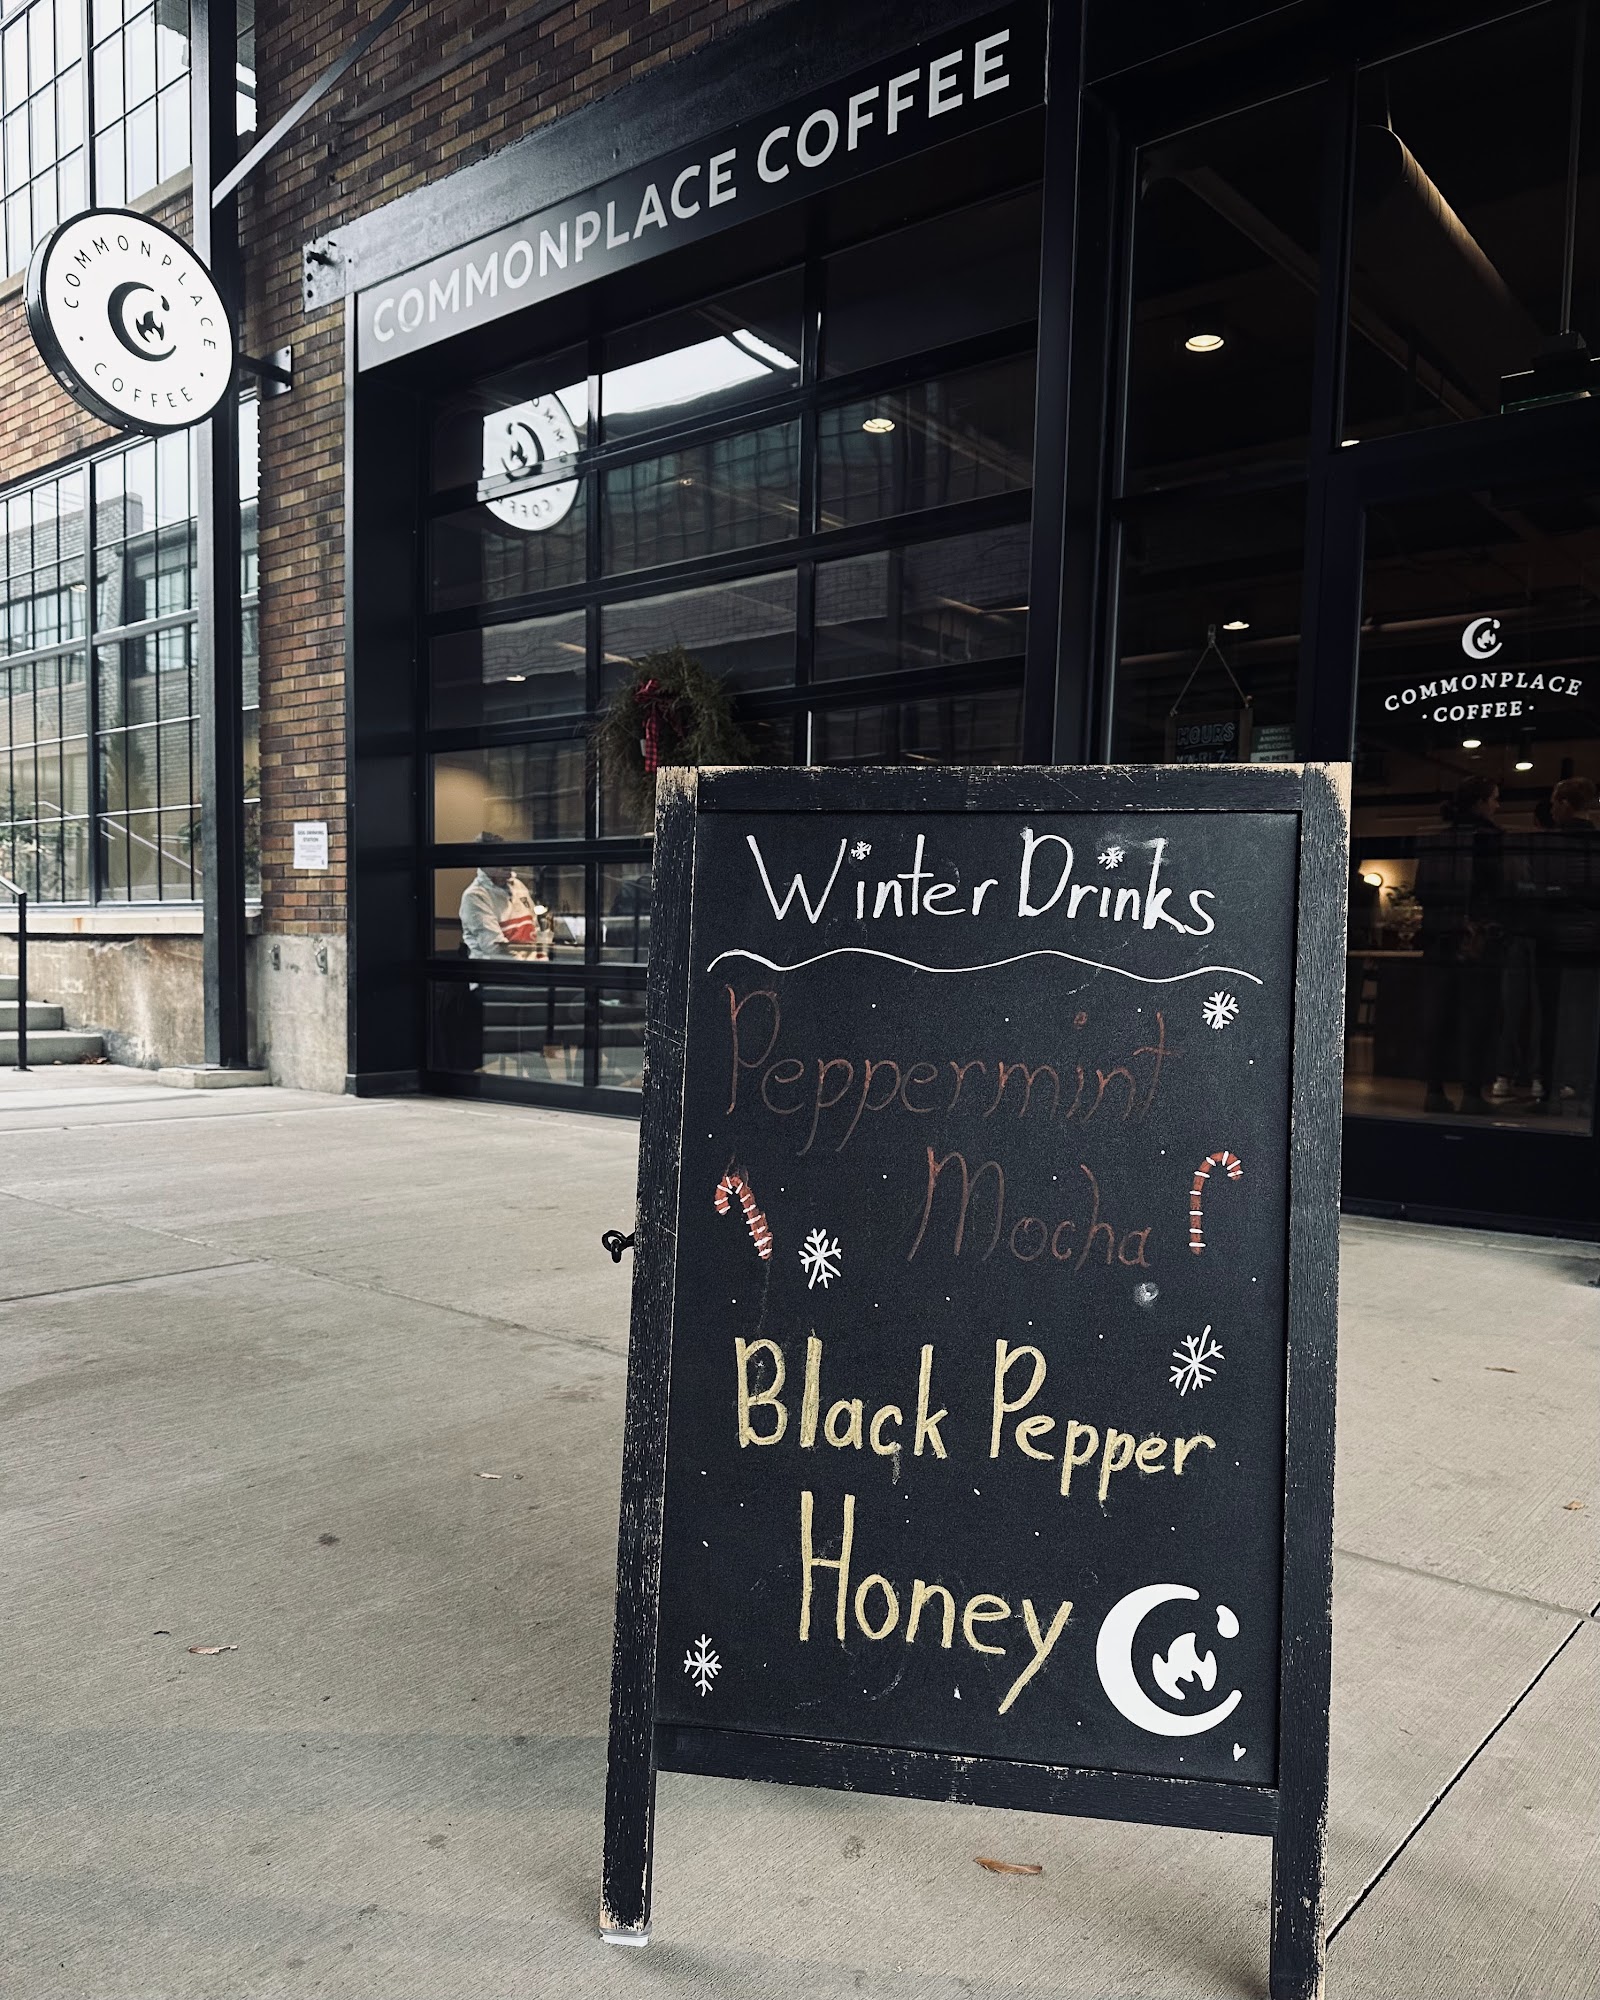 COMMONPLACE COFFEE
COMMONPLACE
COFFEE
COMMONPLACE
· COFFEE ·
HOURS
SERVICE
ANIMALS
WELCOME
Winter Drinks
Peppermint
Mocha
Black Pepper
Honey